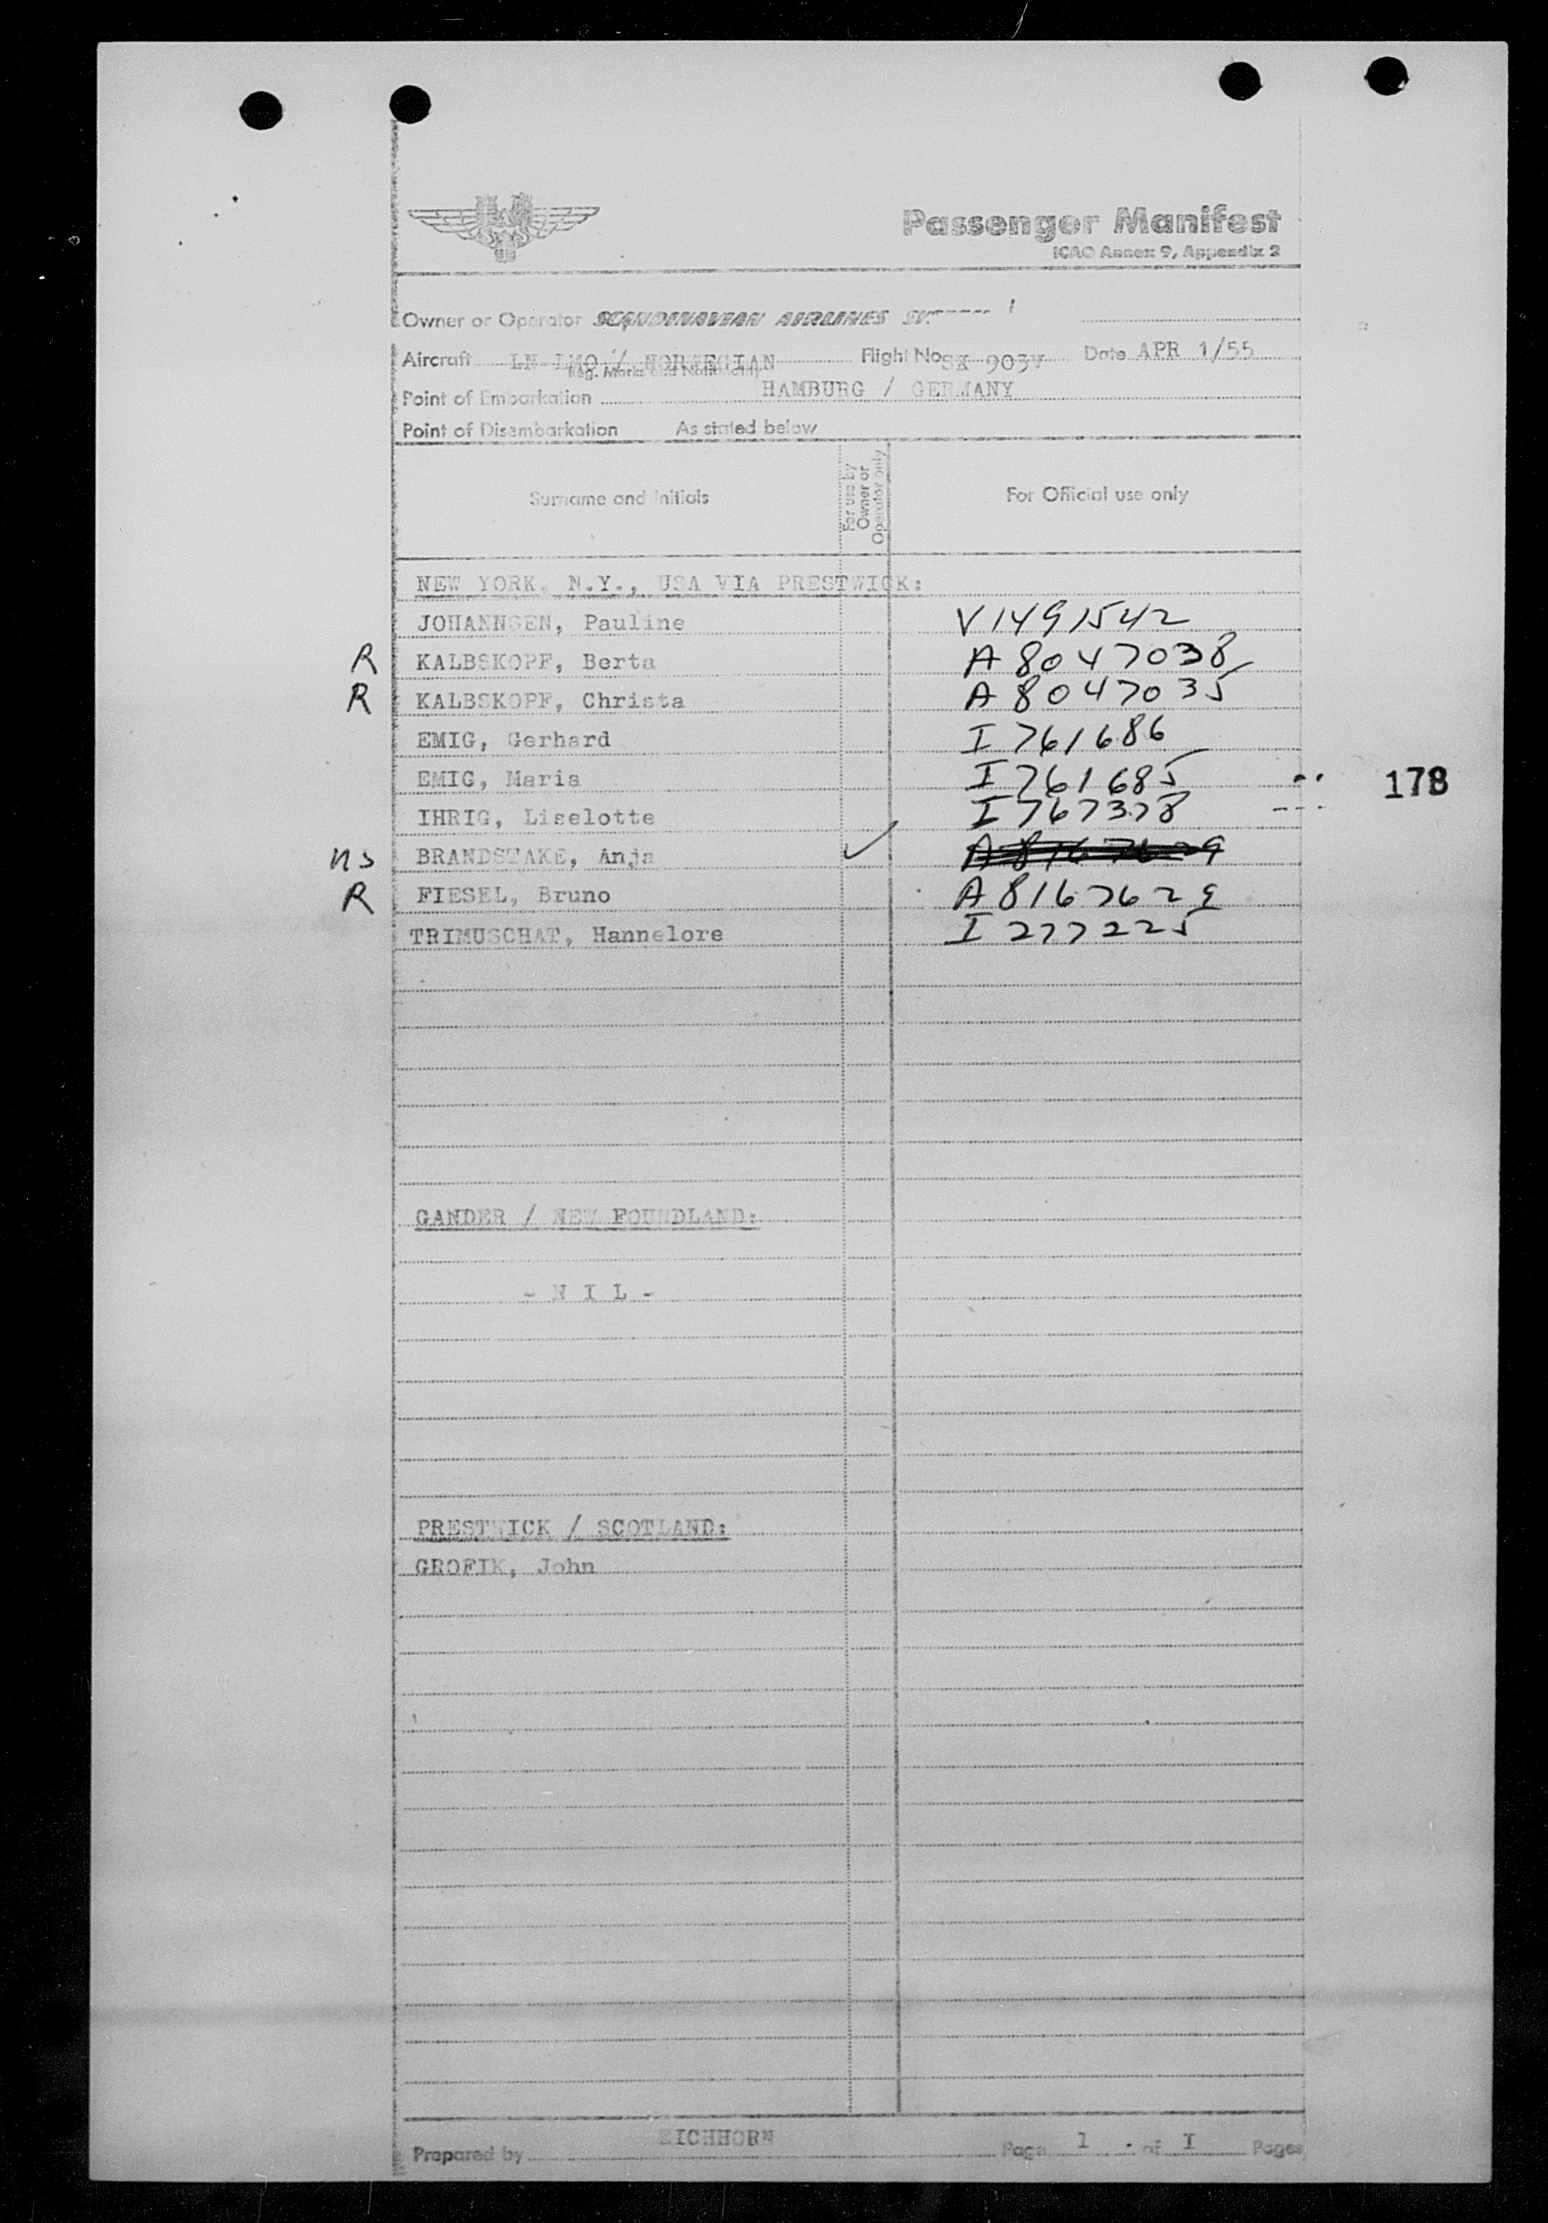 Passenger Manifest
ICAO Annex 9, Appendix 2
Owner or Operator SCANDINAVIAN AIRLINES
Aircraft LN-LMO / NORWEGIAN Flight No SK 903V Date APR 1/55
Reg. Marks and Nationality
Point of Embarkation HAMBURG / GERMANY
Point of Disembarkation As stated below
Surname and Initials
For use by Owner or Operator only
For Official use only
NEW YORK, N.Y., USA VIA PRESTWICK:
JOHANNSEN, Pauline V1491542
R KALBSKOPF, Berta A 8047038
R KALBSKOPF, Christa A 8047035
EMIG, Gerhard I 761686
EMIG, Maria I 761685 178
IHRIG, Liselotte I 767378
ns BRANDSTAKE, Anja ✓
R FIESEL, Bruno A 8167629
TRIMUSCHAT, Hannelore I 277225
GANDER / NEW FOUNDLAND:
- N I L -
PRESTWICK / SCOTLAND:
GROFIK, John
Prepared by EICHHORN Page 1 of 1 Pages